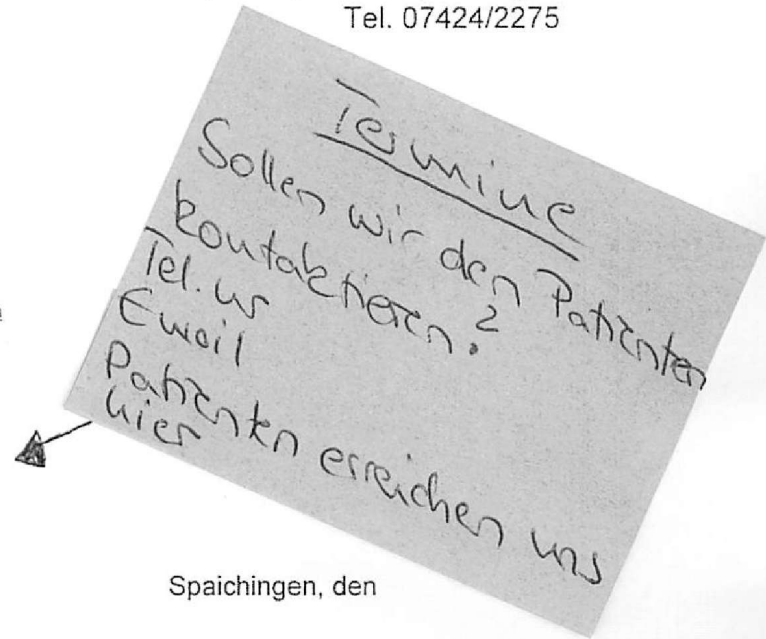 Tel. 07424/2275
Termine
Sollen wir den Patienten
kontaktieren?
Tel. nr
Email
Patienten erreichen uns
hier
Spaichingen, den